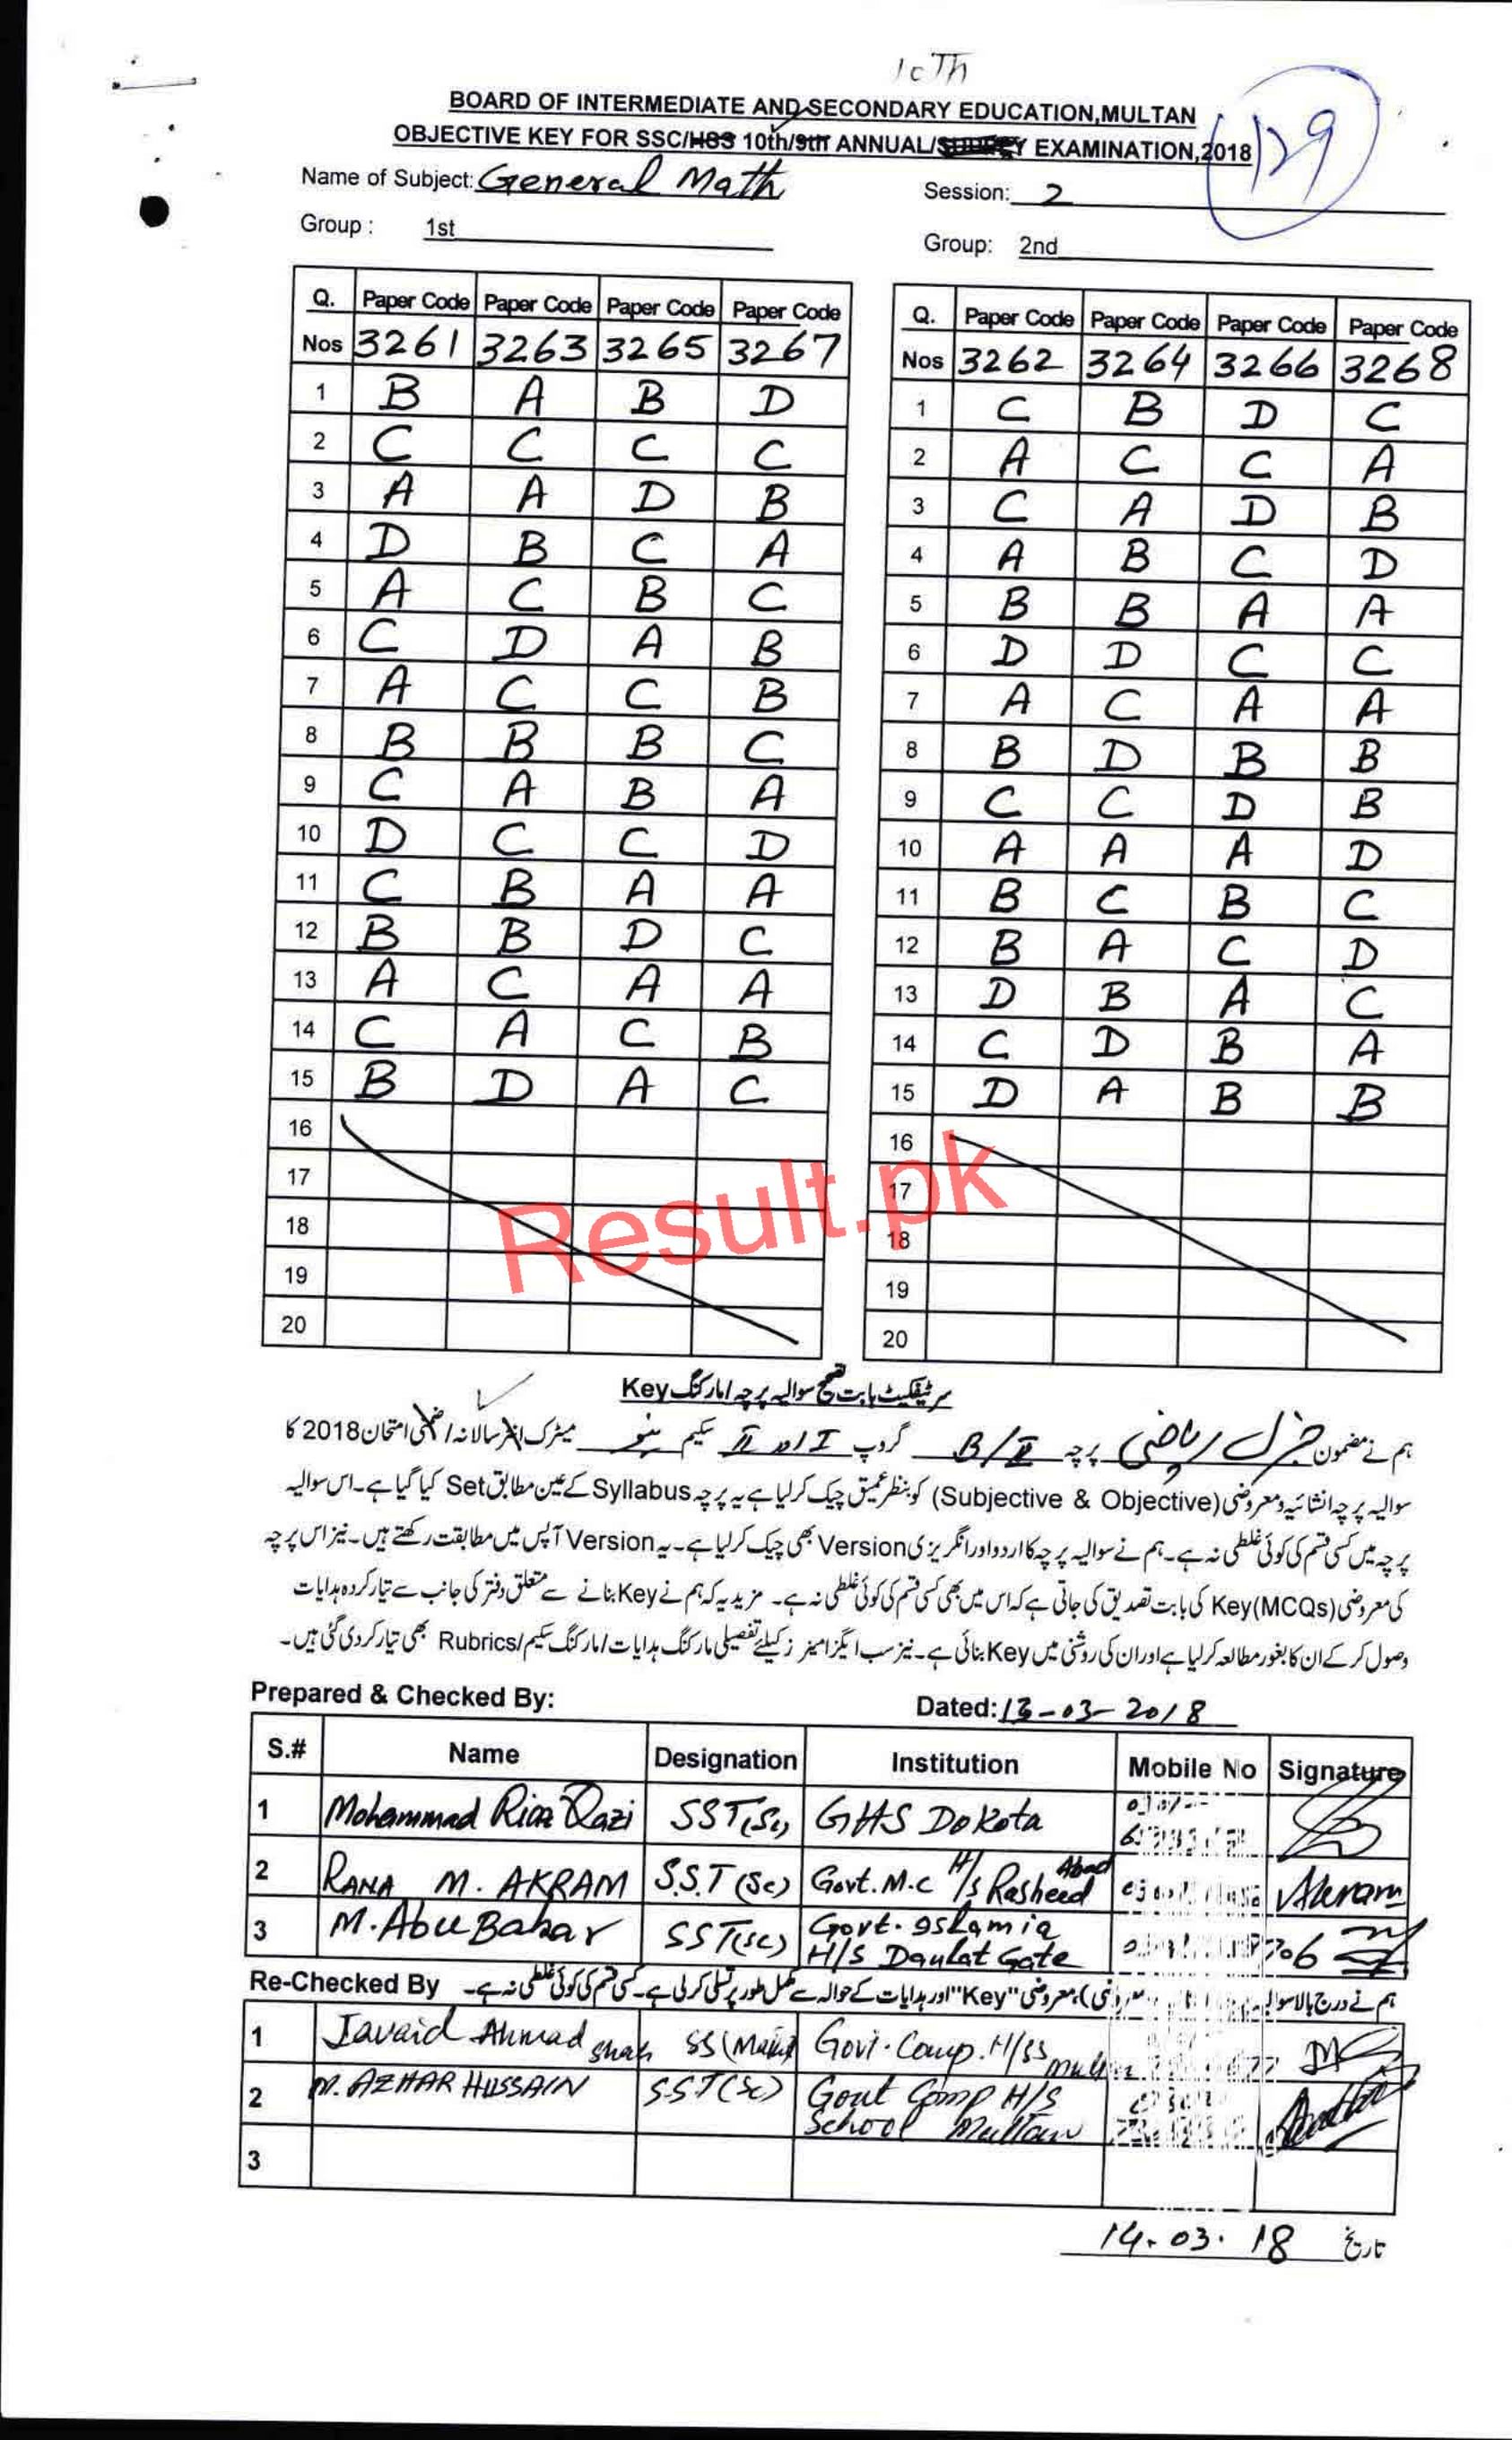 10Th
BOARD OF INTERMEDIATE AND SECONDARY EDUCATION,MULTAN
OBJECTIVE KEY FOR SSC/HSS 10th/9th ANNUAL/SUPPLY EXAMINATION,2018
129
Name of Subject: General Math
Session: 2
Group : 1st
Group: 2nd
Q. Nos Paper Code 3261 Paper Code 3263 Paper Code 3265 Paper Code 3267
1 B A B D
2 C C C C
3 A A D B
4 D B C A
5 A C B C
6 C D A B
7 A C C B
8 B B B C
9 C A B A
10 D C C D
11 C B A A
12 B B D C
13 A C A A
14 C A C B
15 B D A C
16
17
18
19
20
Q. Nos Paper Code 3262 Paper Code 3264 Paper Code 3266 Paper Code 3268
1 C B D C
2 A C C A
3 C A D B
4 A B C D
5 B B A A
6 D D C C
7 A C A A
8 B D B B
9 C C D B
10 A A A D
11 B C B C
12 B A C D
13 D B A C
14 C D B A
15 D A B B
16
17
18
19
20
Result.pk
سرٹیفکیٹ بابت تصحیح سوالیہ پرچہ/مارکنگ Key
ہم نے مضمون جنرل ریاضی پرچہ B/II گروپ I اور II سکیم نیو میٹرک/انٹر سالانہ/ضمنی امتحان 2018 کا
سوالیہ پرچہ انشائیہ ومعروضی (Subjective & Objective) کو بنظر عمیق چیک کرلیا ہے یہ پرچہ Syllabus کے عین مطابق Set کیا گیا ہے۔ اس سوالیہ
پرچہ میں کسی قسم کی کوئی غلطی نہ ہے۔ ہم نے سوالیہ پرچہ کا اردو اور انگریزی Version بھی چیک کرلیا ہے۔ یہ Version آپس میں مطابقت رکھتے ہیں۔ نیز اس پرچہ
کی معروضی (MCQs) Key کی بابت تصدیق کی جاتی ہے کہ اس میں بھی کسی قسم کی کوئی غلطی نہ ہے۔ مزید یہ کہ ہم نے Key بنانے سے متعلق دفتر کی جانب سے تیار کردہ ہدایات
وصول کرکے ان کا بغور مطالعہ کرلیا ہے اور ان کی روشنی میں Key بنائی ہے۔ نیز سب ایگزامینرز کیلئے تفصیلی مارکنگ ہدایات/مارکنگ سکیم/Rubrics بھی تیار کردی گئی ہیں۔
Prepared & Checked By:
Dated: 13-03-2018
S.# Name Designation Institution Mobile No Signature
1 Mohammad Riaz Qazi SST(Sc) GHS Dokota
2 RANA M. AKRAM S.S.T (Sc) Govt. M.C H/S Rasheed Abad Akram
3 M. Abu Bakar SST(SC) Govt. Islamia H/S Daulat Gate
Re-Checked By ہم نے درج بالا معروضی "Key" اور ہدایات کے حوالہ سے مکمل طور پر تسلی کرلی ہے۔ کسی قسم کی کوئی غلطی نہ ہے۔
1 Javaid Ahmad Shah SS (Math) Govt. Comp. H/SS Multan
2 M. AZHAR HUSSAIN SST(SC) Govt Comp H/S School Multan
3
14.03.18 تاریخ